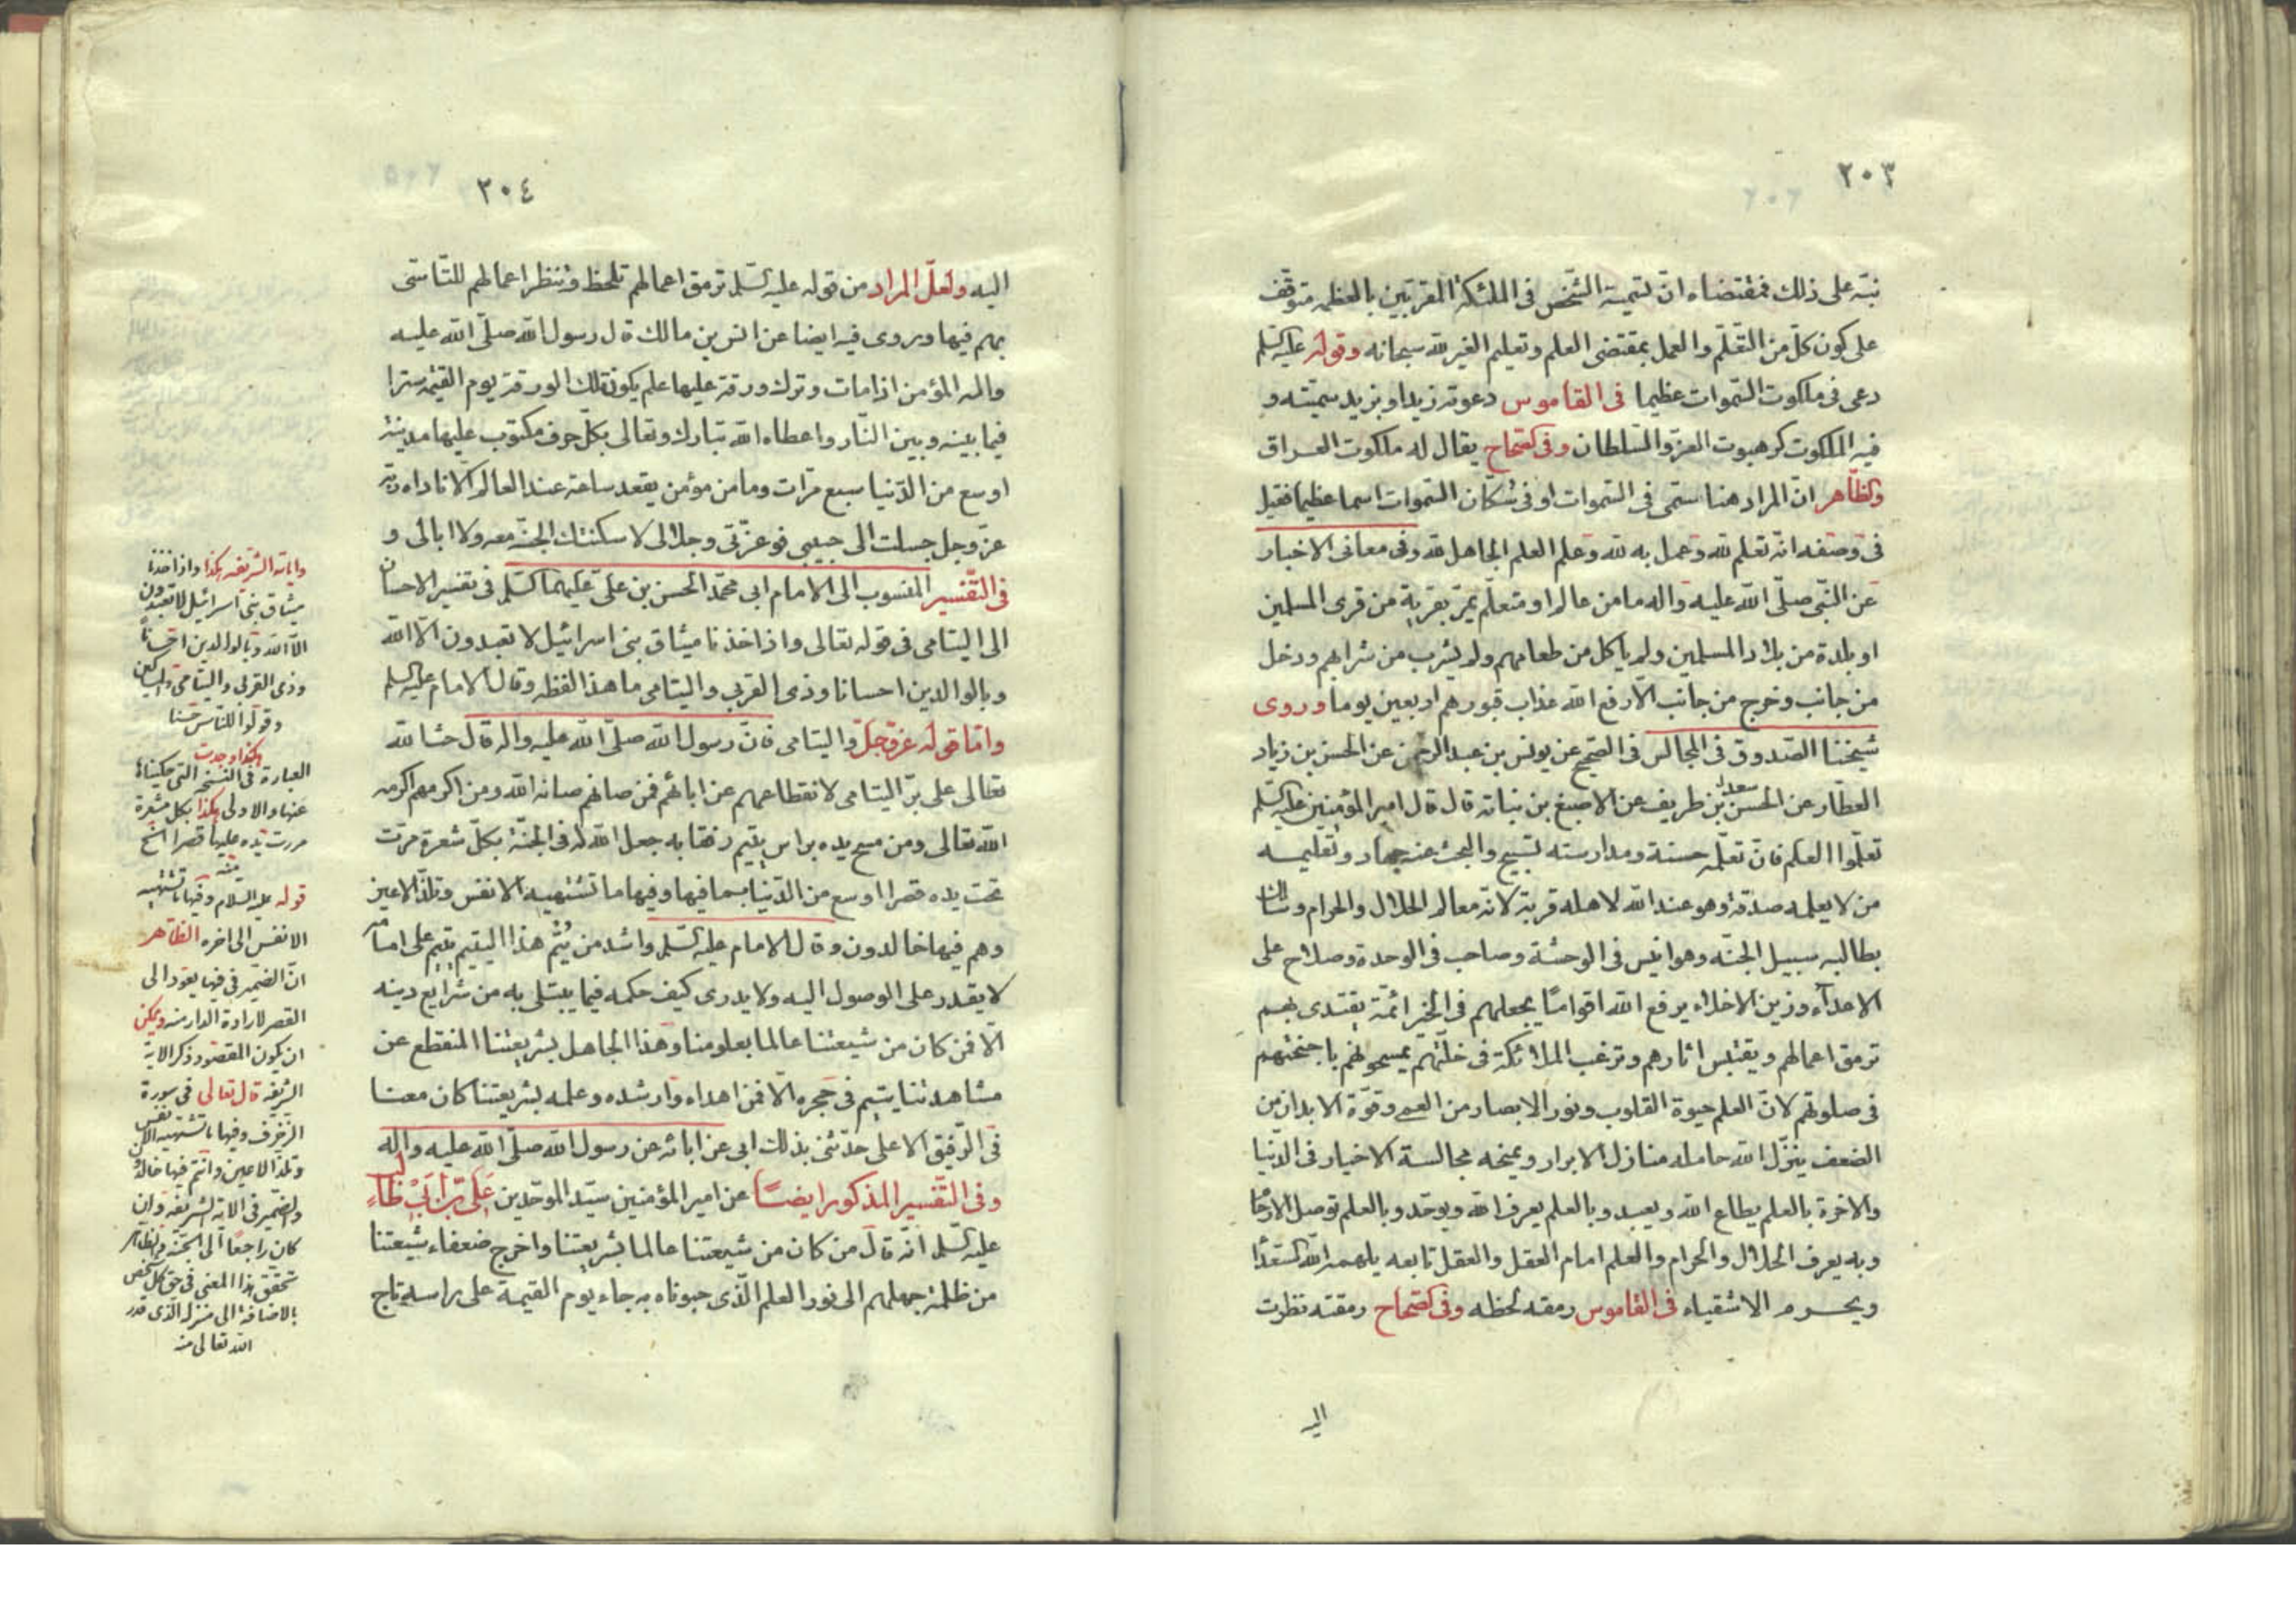 ٢٠٣
نبّه على ذلك فمقتضاه انّ تسمية الشّخص فى الملئكة المقرّبين بالعظمه متوقّف
على كون كلّ من التّعلّم والعمل بمقتضى العلم وتعليم الغير لله سبحانه وقوله عليه السّلم
دعى فى ملكوت السّموات عظيما فى القاموس دعوته زيدا وبزيد سمّيته و
فيه الملكوت كرهبوت العزّ والسّلطان وفى الصّحاح يقال له ملكوت العراق
والظّاهر انّ المراد هنا سمّى فى السّموات او فى سكّان السّموات اسما عظيما فقيل
فى وصفه انّه تعلم لله وعمل به لله وعلم العلم الجاهل لله وفى معانى الاخبار
عن النّبى صلّى الله عليه واله ما من عالم او متعلّم يمرّ بقرية من قرى المسلمين
او بلدة من بلاد المسلمين ولم ياكل من طعامهم ولم يشرب من شرابهم ودخل
من جانب وخرج من جانب الّا رفع الله عذاب قبورهم اربعين يوما وروى
شيخنا الصّدوق فى المجالس فى الصّحيح عن يونس بن عبد الرحمن عن الحسن بن زياد
العطّار عن سعد بن طريف عن الاصبغ بن نباته قال قال امير المؤمنين عليه السّلم
تعلّموا العلم فانّ تعلّمه حسنة ومدارسته تسبيح والبحث عنه جهاد وتعليمه
من لا يعلمه صدقة وهو عند الله لاهله قربة لانّه معالم الحلال والحرام وسالك
بطالبه سبيل الجنّه وهو انيس فى الوحشة وصاحب فى الوحدة وسلاح على
الاعدآء وزين الاخلاء يرفع الله اقوامًا يجعلهم فى الخير ائمّة يقتدى بهم
ترمق اعمالهم ويقتبس اثارهم وترغب الملائكة فى خلّتهم يمسحونهم باجنحتهم
فى صلوتهم لانّ العلم حيوة القلوب ونور الابصار من العمى وقوّة الابدان من
الضعف ينزّل الله حامله منازل الابرار ويمنحه مجالسة الاخيار فى الدّنيا
والاخرة بالعلم يطاع الله ويعبد وبالعلم يعرف الله ويوحّد وبالعلم توصل الارحام
وبه يعرف الحلال والحرام والعلم امام العقل والعقل تابعه يلهمه الله السّعدآء
ويحرمه الاشقياء فى القاموس رمقه لحظه وفى الصّحاح رمقته نظرت
اليه
٢٠٤
اليه ولعلّ المراد من قوله عليه السّلم ترمق اعمالهم تلحظ وتنظر اعمالهم للتّاسّى
بهم فيها وروى فيه ايضا عن انس بن مالك قال رسول الله صلّى الله عليه
واله المؤمن اذا مات وترك ورقة عليها علم يكون تلك الورقة يوم القيمه سترا
فيما بينه وبين النّار واعطاه الله تبارك وتعالى بكلّ حرف مكتوب عليها مدينة
اوسع من الدّنيا سبع مرّات وما من مؤمن يقعد ساعة عند العالم الّا ناداه ربّه
عزّ وجل جسلت الى حبيبى فوعزّتى وجلالى لاسكنتك الجنّه معه ولا ابالى و
فى التّفسير المنسوب الى الامام ابى محمّد الحسن بن علىّ عليهما السّلم فى تفسير الاحسان
الى اليتامى فى قوله تعالى واذ اخذنا ميثاق بنى اسرائيل لا تعبدون الّا الله
وبالوالدين احسانا وذى القربى واليتامى ما هذا لفظه وقال الامام عليه السلم
وامّا قوله عزّ وجلّ واليتامى فانّ رسول الله صلّى الله عليه واله قال حثّ الله
تعالى على برّ اليتامى لانقطاعهم عن ابائهم فمن صانهم صانه الله ومن اكرمهم اكرمه
الله تعالى ومن مسح يده براس يتيم رفقا به جعل الله له فى الجنّة بكلّ شعرة مرّت
تحت يده قصرا اوسع من الدّنيا بما فيها وفيها ما تشتهيه الانفس وتلذّ الاعين
وهم فيها خالدون وقال الامام عليه السّلم واشد من يُتْم هذا اليتيم يتيم على امامه
لا يقدر على الوصول اليه ولا يدرى كيف حكمه فيما يبتلى به من شرايع دينه
الّا فمن كان من شيعتنا عالما بعلومنا وهذا الجاهل بشريعتنا المنقطع عن
مشاهدتنا يتيم فى حجره الّا فمن اهداه وارشده وعلمه بشريعتنا كان معنا
فى الرّفيق الاعلى حدّثنى بذلك ابى عن ابائه عن رسول الله صلّى الله عليه واله
وفى التّفسير المذكور ايضًا عن امير المؤمنين سيّد الموحّدين على بن ابى طالب
عليه السّلم انّه قال من كان من شيعتنا عالما بشريعتنا واخرج ضعفاء شيعتنا
من ظلمة جهلهم الى نور العلم الّذى حبوناه به جاء يوم القيمة على راسه تاج
والاية الشريفه هكذا واذ اخذنا
ميثاق بنى اسرائيل لا تعبدون
الّا الله وبالوالدين احسانًا
وذى القربى واليتامى والمساكين
وقولوا للنّاس حسنا
هكذا وجدت
العبارة فى النسخ التى حكيناها
عنها والاولى هكذا بكل شعرة
مررت يده عليها قصرا الخ
منه
قوله عليه السلام وفيها ما تشتهيه
الانفس الى اخره الظّاهر
انّ الضمير فى فيها يعود الى
القصر لارادة الدار منه ويمكن
ان يكون المقصود ذكر الاية
الشريفه قال تعالى فى سورة
الزخرف وفيها ما تشتهيه الانفس
وتلذ الاعين وانتم فيها خالدون
والضمير فى الاية الشريفه وان
كان راجعًا الى الجنّه والظاهر
تحقّق هذا المعنى فى حق كل شخص
بالاضافة الى منزله الذى قدر
الله تعالى منه